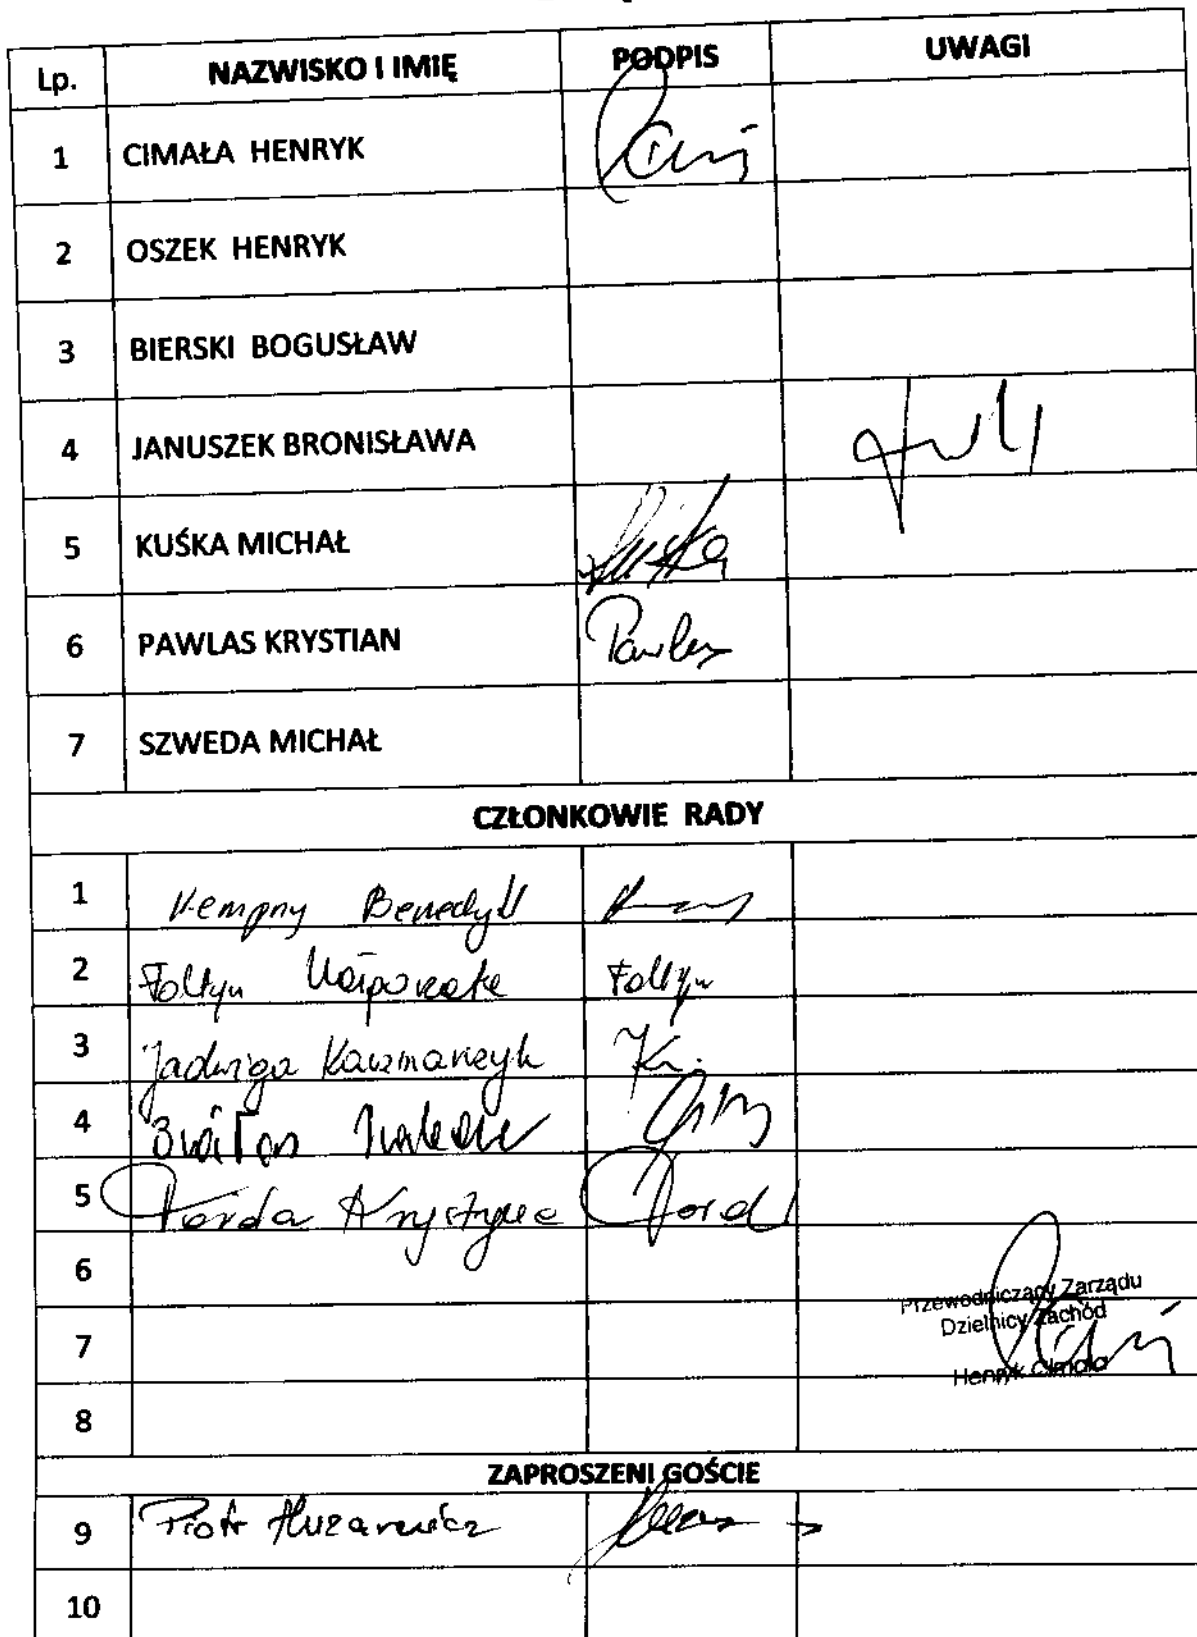 Lp. NAZWISKO I IMIĘ PODPIS UWAGI
1 CIMAŁA HENRYK
2 OSZEK HENRYK
3 BIERSKI BOGUSŁAW
4 JANUSZEK BRONISŁAWA
5 KUŚKA MICHAŁ Kuśka
6 PAWLAS KRYSTIAN Pawlas
7 SZWEDA MICHAŁ
CZŁONKOWIE RADY
1 Kempny Benedykt
2 Foltyn Małgorzata Foltyn
3 Jadwiga Kaczmarczyk
4
5 Porda Krystyna Pord
6
Przewodniczący Zarządu
7 Dzielnicy Zachód
Henryk Cimała
8
ZAPROSZENI GOŚCIE
9 Piotr Huzarewicz
10